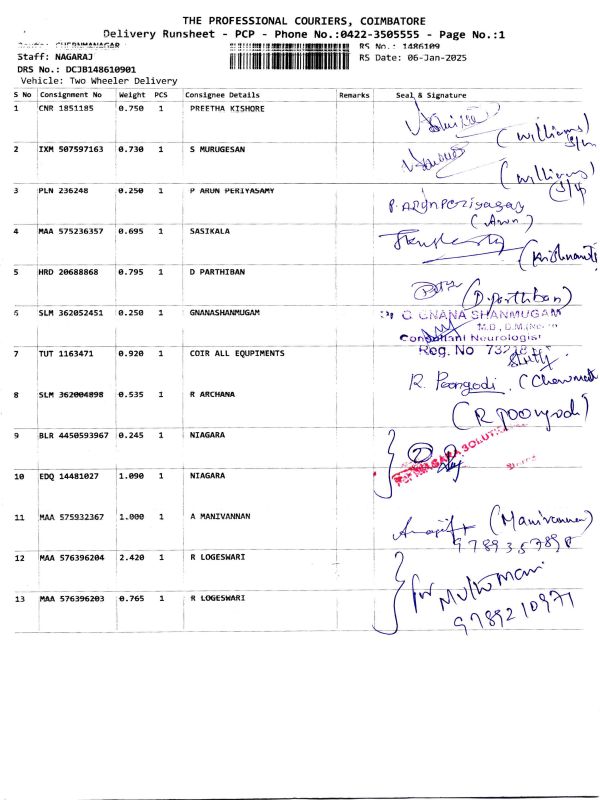 THE PROFESSIONAL COURIERS, COIMBATORE
Delivery Runsheet - PCP - Phone No.:0422-3505555 - Page No.:1
CHERNMANAGAR RS No.: 1486109
Staff: NAGARAJ RS Date: 06-Jan-2025
DRS No.: DCJB148610901
Vehicle: Two Wheeler Delivery
S No Consignment No Weight PCS Consignee Details Remarks Seal & Signature
1 CNR 1851185 0.750 1 PREETHA KISHORE
(Williams)
2 IXM 507597163 0.730 1 S MURUGESAN
(Williams)
3 PLN 236248 0.250 1 P ARUN PERIYASAMY P. ARUN PERIYASAMY
(Arun)
4 MAA 575236357 0.695 1 SASIKALA
5 HRD 20688868 0.795 1 D PARTHIBAN (D.parthiban)
6 SLM 362052451 0.250 1 GNANASHANMUGAM GNANA SHANMUGAM
M.D., D.M.
Consultant Neurologist
7 TUT 1163471 0.920 1 COIR ALL EQUPIMENTS Reg. No
R. Poongodi
8 SLM 362004898 0.535 1 R ARCHANA
(R poongodi)
9 BLR 4450593967 0.245 1 NIAGARA
For NIAGARA SOLUTI
10 EDQ 14481027 1.090 1 NIAGARA
11 MAA 575932367 1.000 1 A MANIVANNAN (Manivannan)
12 MAA 576396204 2.420 1 R LOGESWARI
for Muthu Mani
13 MAA 576396203 0.765 1 R LOGESWARI
9789210971